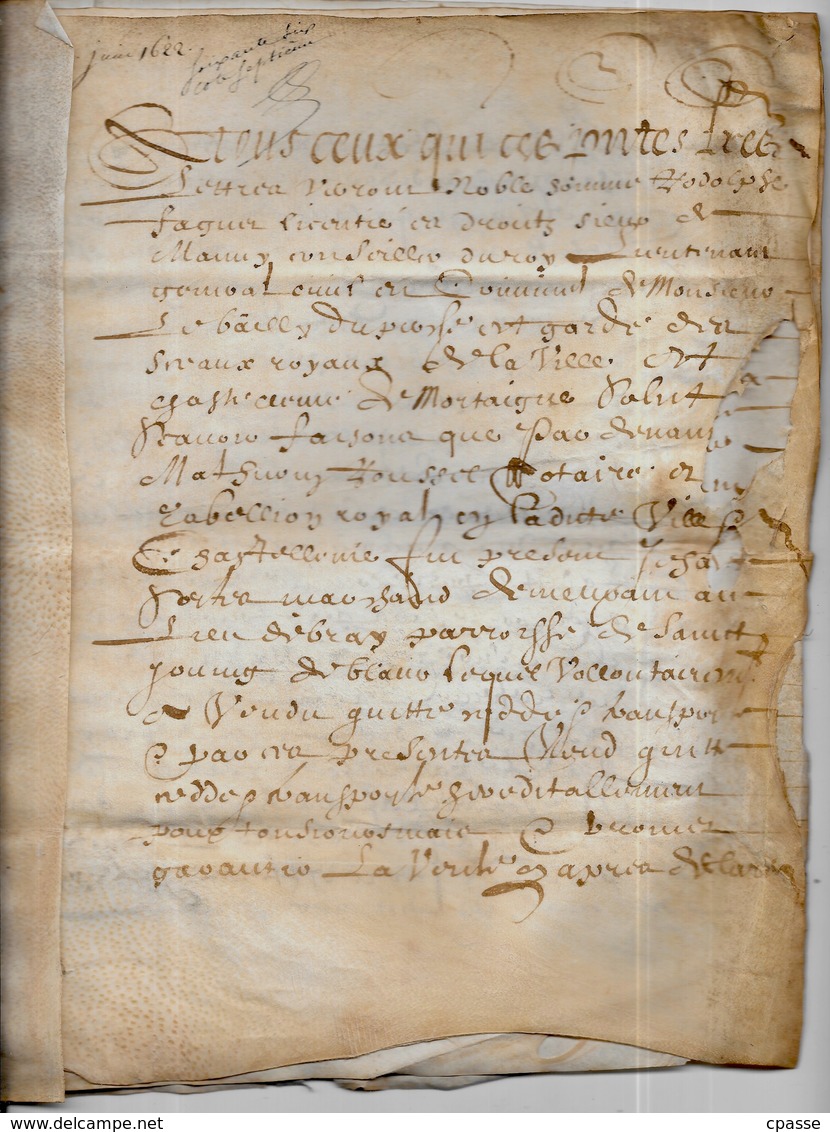 juin 1622
soixante dix
cotte septieme
A tous ceux qui ces pntes
Lettres verront Noble homme Rodolphe
faguet licentie en droictz sieur de
Mauny conseiller du roy Lieutenant
general civil et Criminel de Monsieur
Le bailly du perche et garde des
sceaux royaux de la Ville et
chastellenie de Mortaigne Salut
scavoir faisons que par devant
Mathurin Roussel Notaire et
Tabellion royal en ladite Ville &
Chastellenie fut present
marchand demeurant au
Lieu debray parroisse de sainct
de blavo lequel vollontairemt
a Vendu quitte cedde & transporte
& par ces presentes Vend quitte
cedde & transporte hereditallement
pour tousiours mais & promet
garantir La Vente cy apres declaree
cpasse